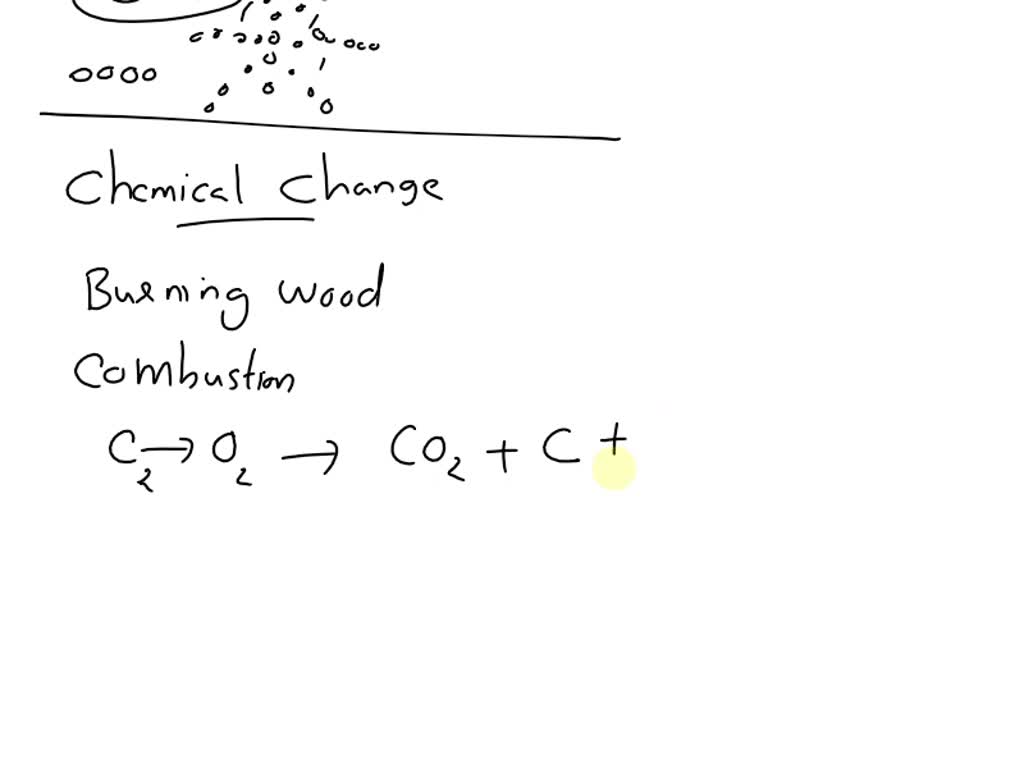 Chemical Change
Burning wood
Combustion
C₂→O₂ → CO₂ + C +